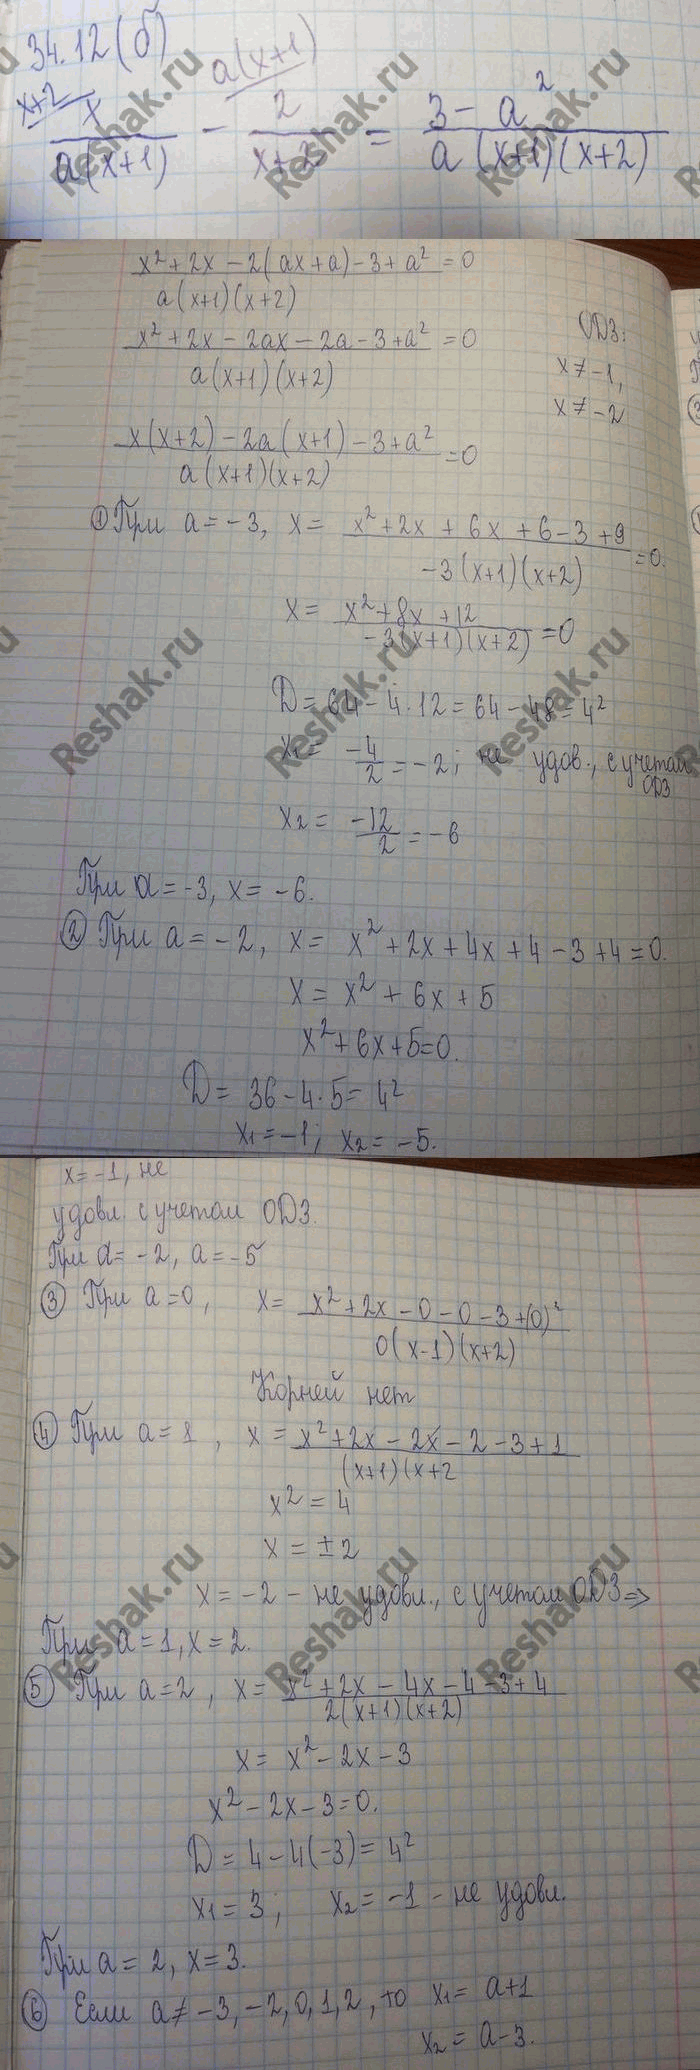 34.12 (б)
x+2 a(x+1)
x/a(x+1) − 2/x+2 = 3−a²/a(x+1)(x+2)
x²+2x−2(ax+a)−3+a²/a(x+1)(x+2) = 0
ОДЗ:
x²+2x−2ax−2a−3+a²/a(x+1)(x+2) = 0
x≠−1,
x≠−2
x(x+2)−2a(x+1)−3+a²/a(x+1)(x+2) = 0
① При a=−3, x= x²+2x+6x+6−3+9/−3(x+1)(x+2) = 0.
x= x²+8x+12/−3(x+1)(x+2) = 0
D=64−4·12=64−48=4²
x₁= −4/2 = −2; не удов., с учетом ОДЗ
x₂= −12/2 = −6
При a=−3, x=−6.
② При a=−2, x= x²+2x+4x+4−3+4=0.
x= x²+6x+5
x²+6x+5=0.
D= 36−4·5= 4²
x₁=−1; x₂=−5.
x=−1, не
удовл. с учетом ОДЗ.
При a=−2, a=−5
③ При a=0, x= x²+2x−0−0−3+(0)²/0(x−1)(x+2)
Корней нет
④ При a=1, x= x²+2x−2x−2−3+1/(x+1)(x+2
x²=4
x=±2
x=−2 − не удовл., с учетом ОДЗ ⇒
При a=1, x=2.
⑤ При a=2, x= x²+2x−4x−4−3+4/2(x+1)(x+2)
x= x²−2x−3
x²−2x−3=0.
D=4−4(−3)=4²
x₁=3; x₂=−1 − не удовл.
При a=2, x=3.
⑥ Если a≠−3,−2,0,1,2, то x₁= a+1
x₂= a−3.
Reshak.ru